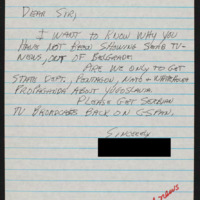 DEAR SIR,
I WANT TO KNOW WHY YOU
HAVE NOT BEEN SHOWING SERB TV-
NEWS, OUT OF BELGRADE.
ARE WE ONLY TO GET
STATE DEPT., PENTAGON, NATO & WHITEHOUSE
PROPAGANDA ABOUT YUGOSLAVIA.
PLEASE GET SERBIAN
TV BROADCASTS BACK ON C-SPAN.
SINCERELY
news